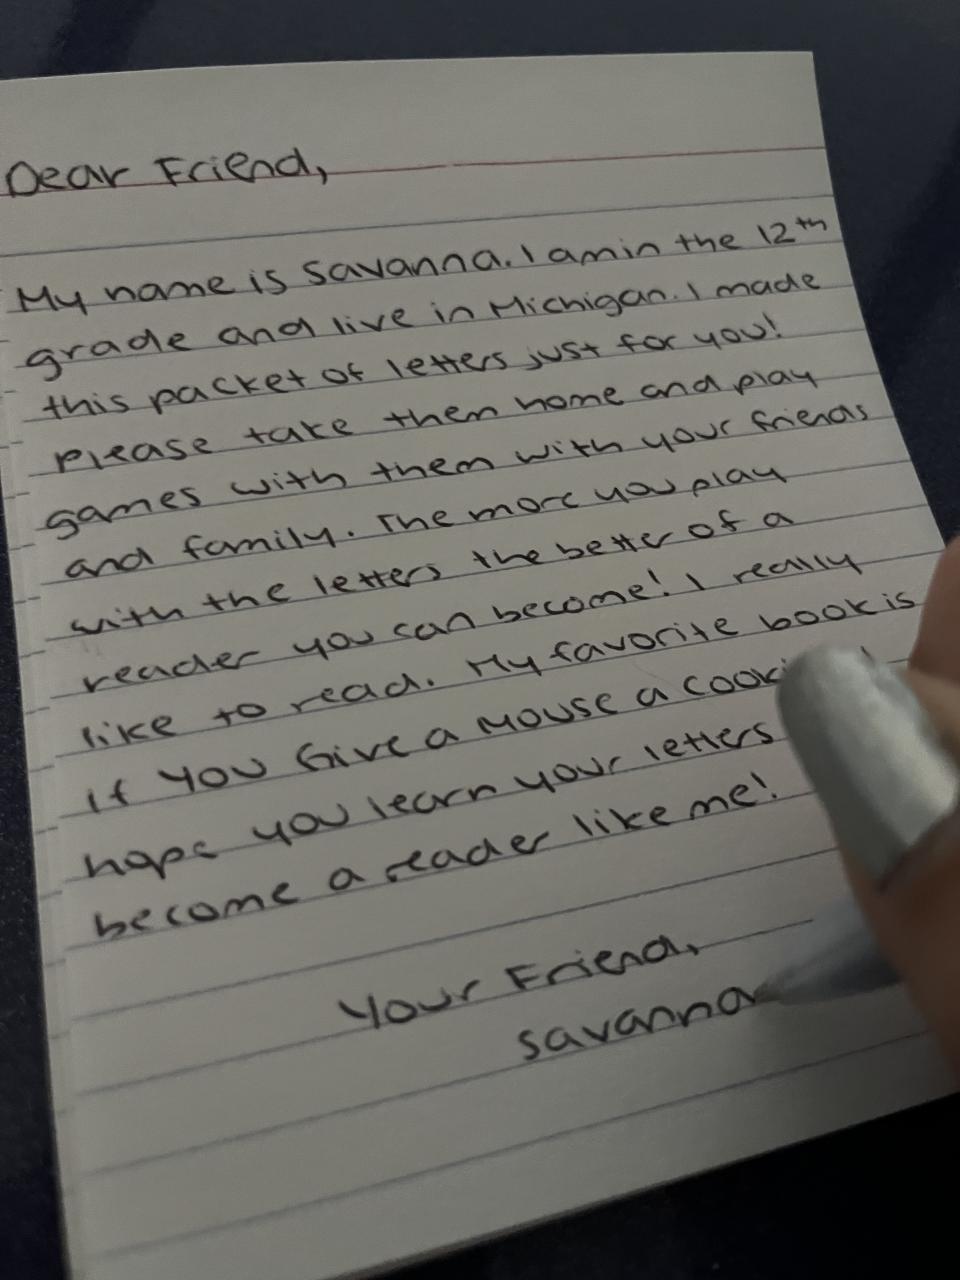 Dear Friend,
My name is Savanna. I am in the 12th
grade and live in Michigan. I made
this packet of letters just for you!
Please take them home and play
games with them with your friends
and family. The more you play
with the letters the better of a
reader you can become! I really
like to read. My favorite book is
If You Give a Mouse a
hope you learn your letters
become a reader like me!
Your Friend,
Savanna